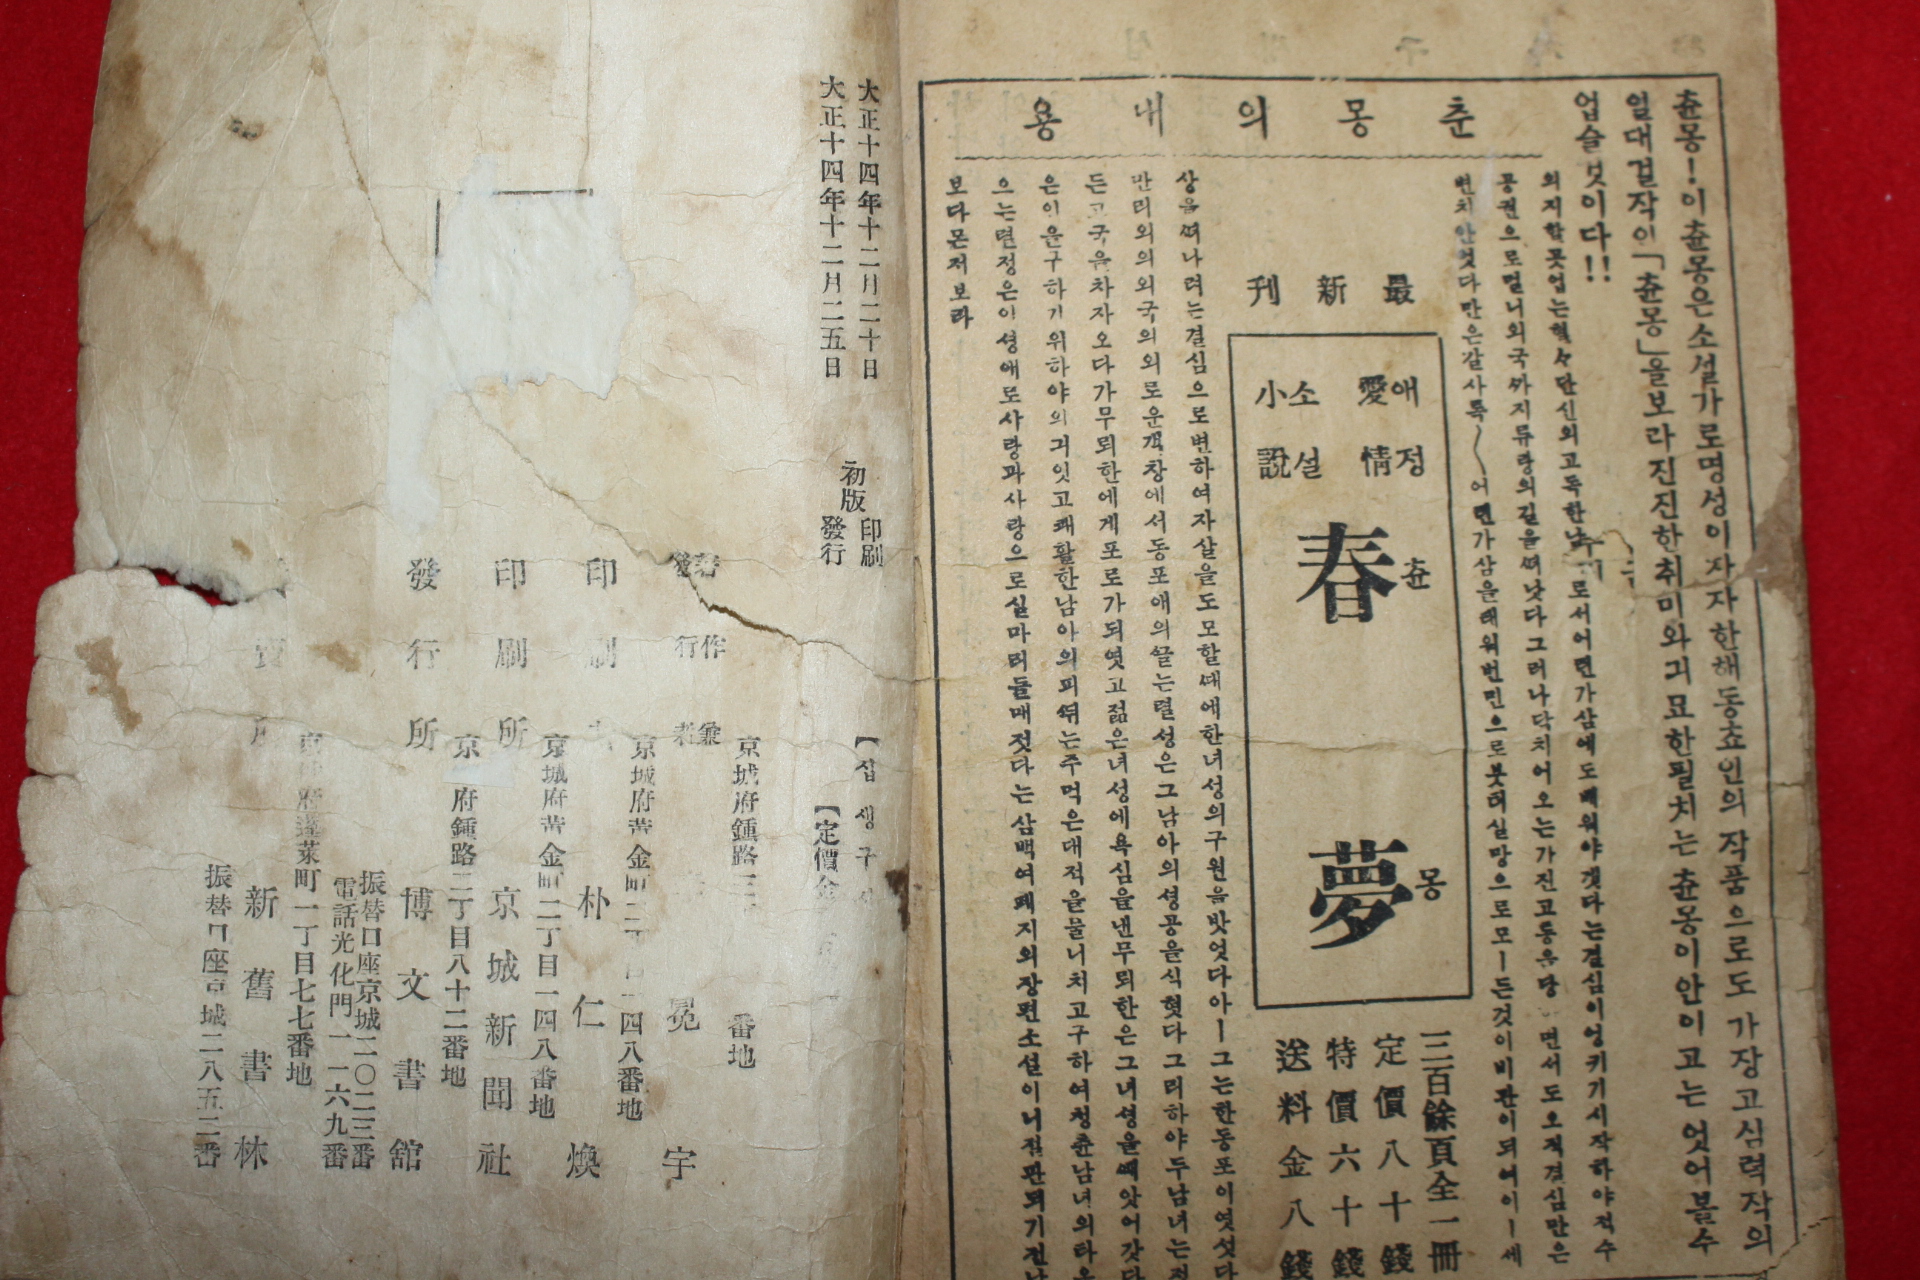 츈몽!이츈몽은소설가로명성이자자한해동쵸인의작품으로도가장고심력작의
일대걸작이「츈몽」을보라진진한취미와긔묘한필치는츈몽이안이고는엇어볼수
업슬것이다!!
춘몽의내용
외지할곳업는혁々단신의고독한
로서어떤가삼에도태워야겟다는결심이엉키기시작하야적수
공권으로멀니외국까지류랑의길을떠낫다그러나닥치어오는가진고통을당
면서도오직결심만은
변치안엇다만은갈사록〳〵어떤가삼을태워번민으로붓터실망으로모ー든것이비관이되여이ー세
最新刊
애정 愛情
소설 小說
春츈夢몽
三百餘頁全一冊
定價八十錢
特價六十錢
送料金八錢
상을떠나려는결심으로변하여자살을도모할때에한녀성의구원을밧엇다아ー그는한동포이엿섯다
만리외의외국의외로운객창에서동포애의끌는렬성은그남아의셩공을식혓다그러하야두남녀는정
든고국을차자오다가무뢰한에게포로가되엿고졂은녀성에욕심을낸무뢰한은그녀셩을빼앗어갓다
은인을구하기위하야의긔잇고쾌활한남아의피뛰는주먹은대적을물니치고구하여청츈남녀의타
으는렬정은이셩애로사랑과사랑으로실마리를매젓다는삼백여페지의장편소설이니절판되기전
보다몬저보라
大正十四年十二月二十日
大正十四年十二月二五日
初版
印刷
發行
【삽생구
【定價金
京城府鍾路三
番地
著作兼
發行者
冕宇
京城府黃金町二
一四八番地
印刷
朴仁煥
京城府黃金町二丁目一四八番地
印刷所
京城新聞社
京
府鍾路二丁目八十二番地
發行所
博文書舘
振替口座京城二〇二三番
電話光化門一一六九番
府蓬萊町一丁目七七番地
賣所
新舊書林
振替口座京城二八五二番